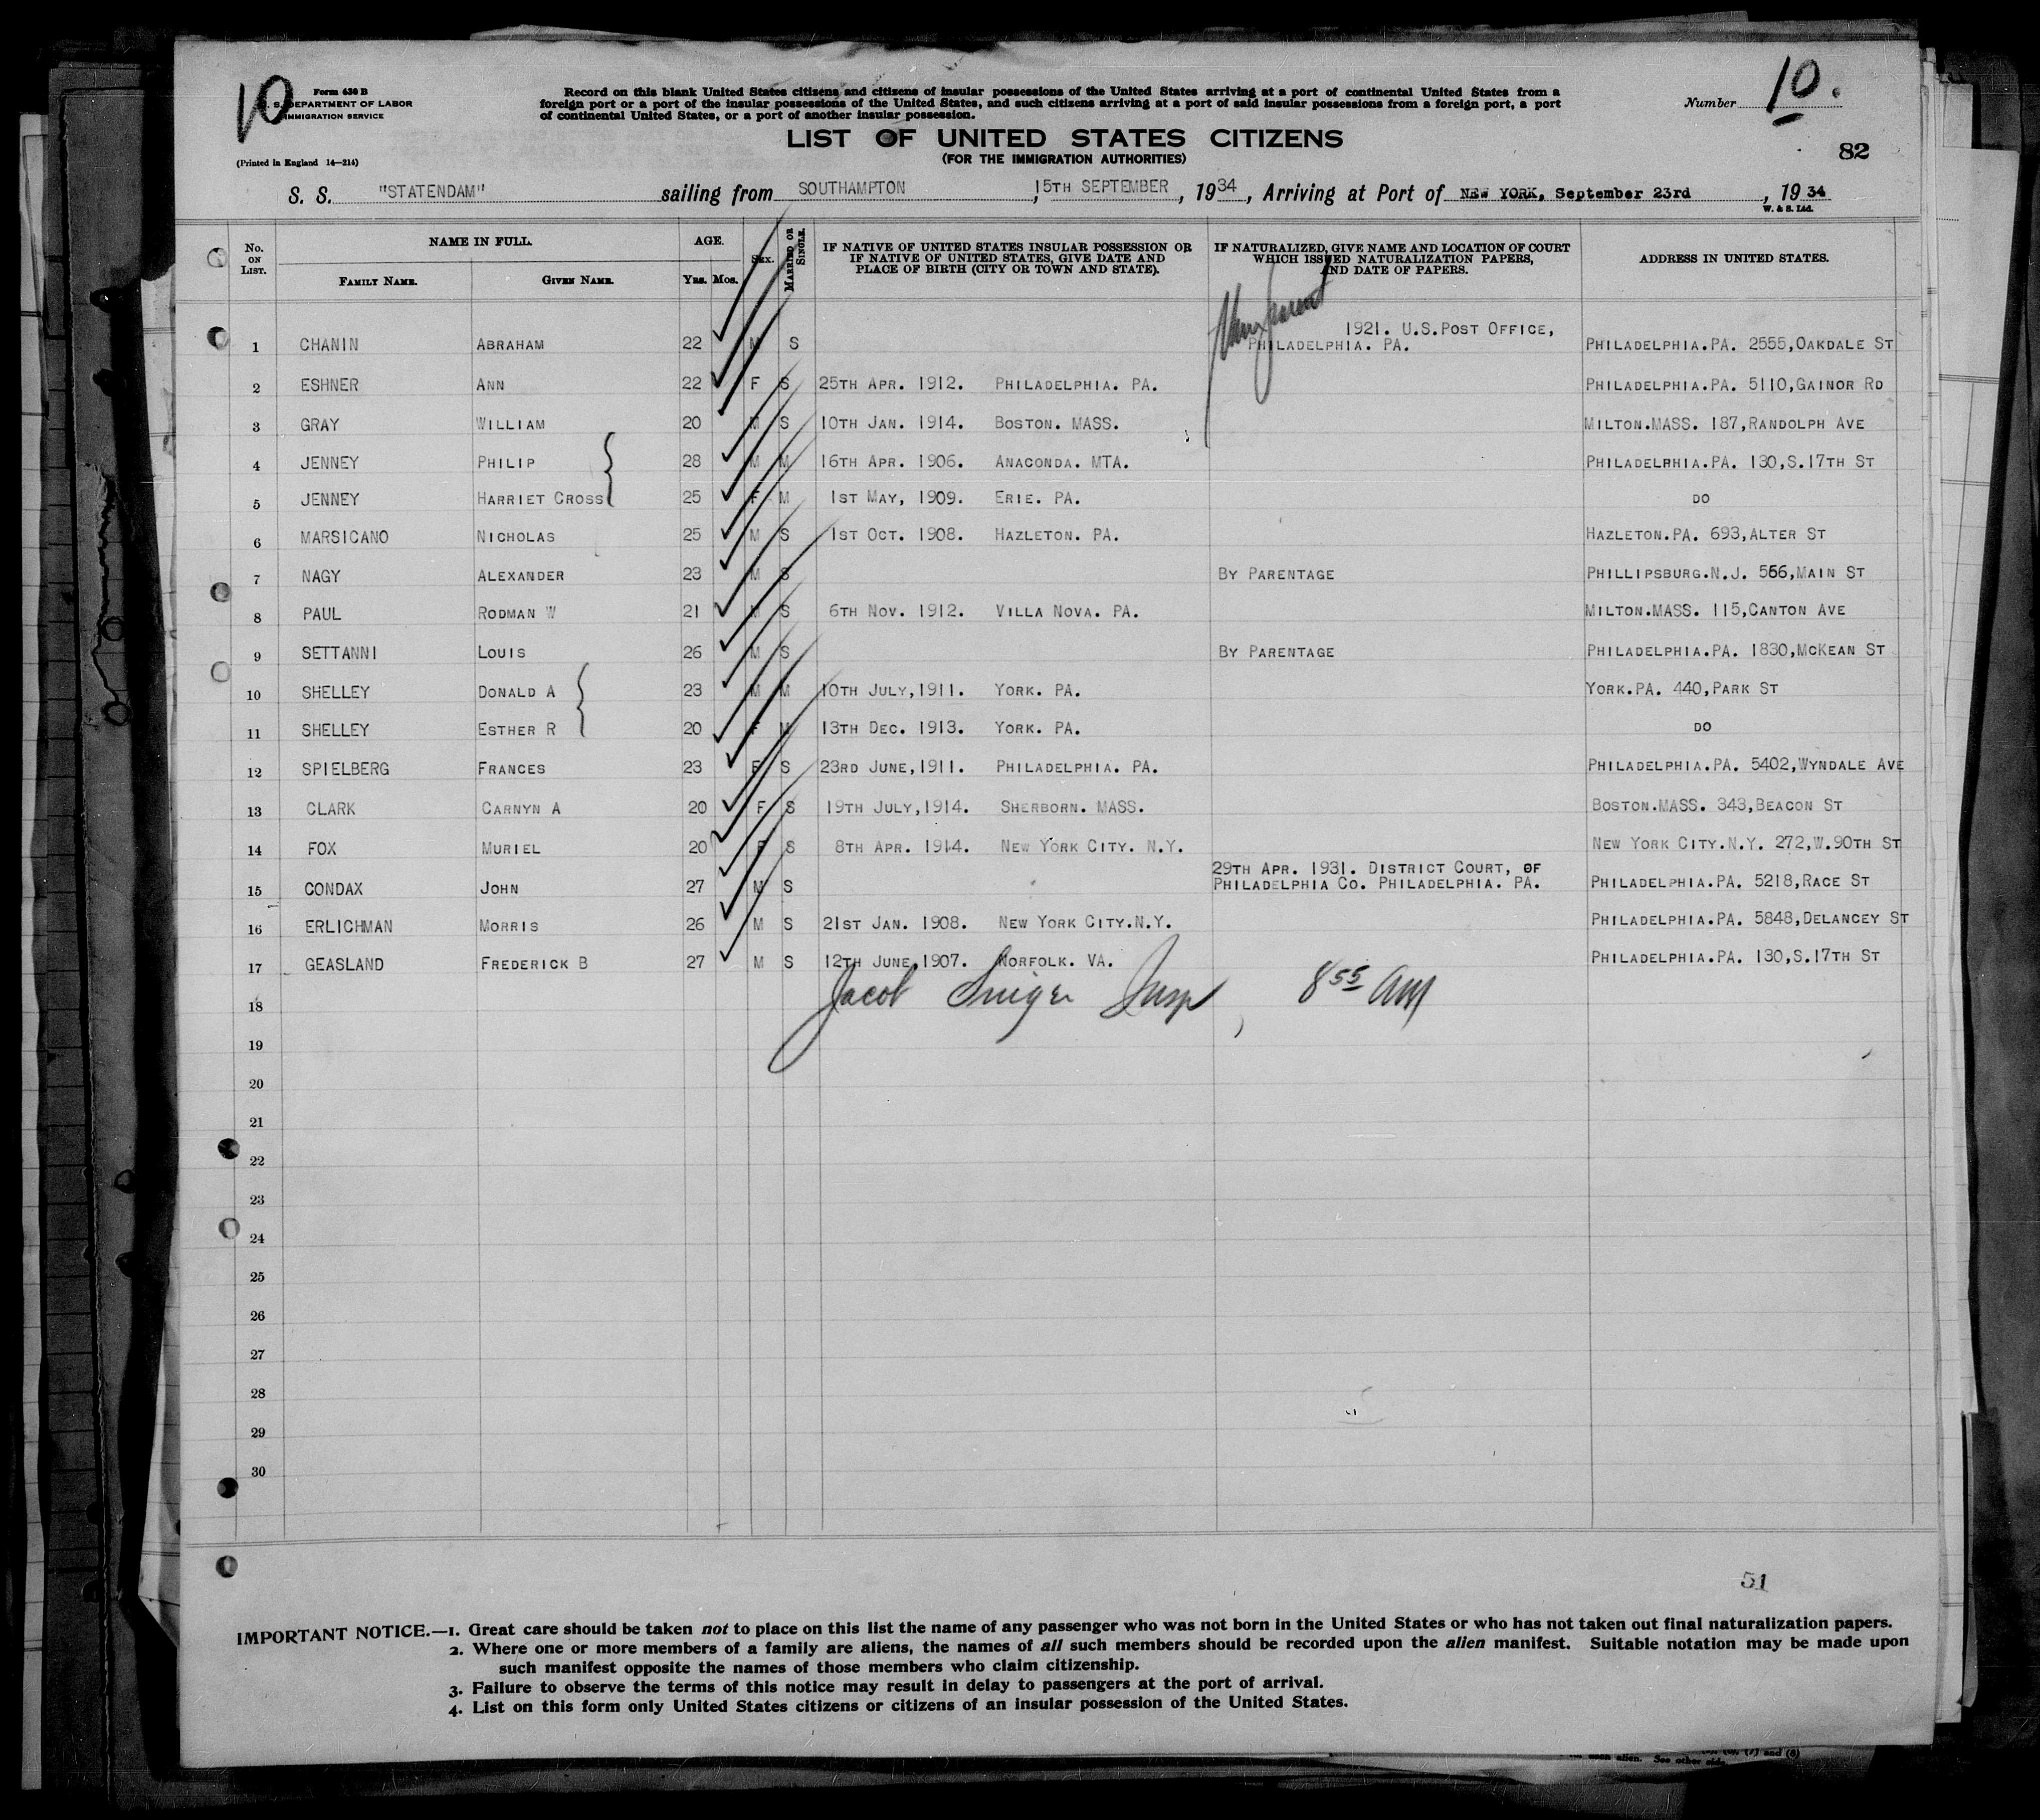 10
Form 630 B
U. S. DEPARTMENT OF LABOR
IMMIGRATION SERVICE
(Printed in England 14—214)
Record on this blank United States citizens and citizens of insular possessions of the United States arriving at a port of continental United States from a
foreign port or a port of the insular possessions of the United States, and such citizens arriving at a port of said insular possessions from a foreign port, a port
of continental United States, or a port of another insular possession.
Number 10.
LIST OF UNITED STATES CITIZENS
(FOR THE IMMIGRATION AUTHORITIES)
82
S. S. "STATENDAM" sailing from SOUTHAMPTON, 15TH SEPTEMBER, 1934, Arriving at Port of NEW YORK, September 23rd, 1934
W. & S. Ltd.
No. ON LIST. NAME IN FULL. FAMILY NAME. GIVEN NAME. AGE. YRS. MOS. SEX. MARRIED OR SINGLE. IF NATIVE OF UNITED STATES INSULAR POSSESSION OR IF NATIVE OF UNITED STATES, GIVE DATE AND PLACE OF BIRTH (CITY OR TOWN AND STATE). IF NATURALIZED, GIVE NAME AND LOCATION OF COURT WHICH ISSUED NATURALIZATION PAPERS, AND DATE OF PAPERS. ADDRESS IN UNITED STATES.
1 CHANIN ABRAHAM 22 M S 1921. U.S.POST OFFICE, PHILADELPHIA. PA. PHILADELPHIA.PA. 2555,OAKDALE ST
2 ESHNER ANN 22 F S 25TH APR. 1912. PHILADELPHIA. PA. PHILADELPHIA.PA. 5110,GAINOR RD
3 GRAY WILLIAM 20 M S 10TH JAN. 1914. BOSTON. MASS. MILTON.MASS. 187,RANDOLPH AVE
4 JENNEY PHILIP 28 M M 16TH APR. 1906. ANACONDA. MTA. PHILADELPHIA.PA. 130,S.17TH ST
5 JENNEY HARRIET CROSS 25 F M 1ST MAY, 1909. ERIE. PA. DO
6 MARSICANO NICHOLAS 25 M S 1ST OCT. 1908. HAZLETON. PA. HAZLETON.PA. 693,ALTER ST
7 NAGY ALEXANDER 23 M S BY PARENTAGE PHILLIPSBURG.N.J. 566,MAIN ST
8 PAUL RODMAN W 21 M S 6TH NOV. 1912. VILLA NOVA. PA. MILTON.MASS. 115,CANTON AVE
9 SETTANNI LOUIS 26 M S BY PARENTAGE PHILADELPHIA.PA. 1830,MCKEAN ST
10 SHELLEY DONALD A 23 M M 10TH JULY,1911. YORK. PA. YORK.PA. 440,PARK ST
11 SHELLEY ESTHER R 20 F M 13TH DEC. 1913. YORK. PA. DO
12 SPIELBERG FRANCES 23 F S 23RD JUNE,1911. PHILADELPHIA. PA. PHILADELPHIA.PA. 5402,WYNDALE AVE
13 CLARK CARNYN A 20 F S 19TH JULY,1914. SHERBORN. MASS. BOSTON.MASS. 343,BEACON ST
14 FOX MURIEL 20 F S 8TH APR. 1914. NEW YORK CITY. N.Y. NEW YORK CITY.N.Y. 272,W.90TH ST
15 CONDAX JOHN 27 M S 29TH APR. 1931. DISTRICT COURT, OF PHILADELPHIA CO. PHILADELPHIA. PA. PHILADELPHIA.PA. 5218,RACE ST
16 ERLICHMAN MORRIS 26 M S 21ST JAN. 1908. NEW YORK CITY.N.Y. PHILADELPHIA.PA. 5848,DELANCEY ST
17 GEASLAND FREDERICK B 27 M S 12TH JUNE,1907. NORFOLK. VA. PHILADELPHIA.PA. 130,S.17TH ST
18 Jacob Insp 8 55 AM
19
20
21
22
23
24
25
26
27
28
29
30
51
IMPORTANT NOTICE.—1. Great care should be taken not to place on this list the name of any passenger who was not born in the United States or who has not taken out final naturalization papers.
2. Where one or more members of a family are aliens, the names of all such members should be recorded upon the alien manifest. Suitable notation may be made upon
such manifest opposite the names of those members who claim citizenship.
3. Failure to observe the terms of this notice may result in delay to passengers at the port of arrival.
4. List on this form only United States citizens or citizens of an insular possession of the United States.